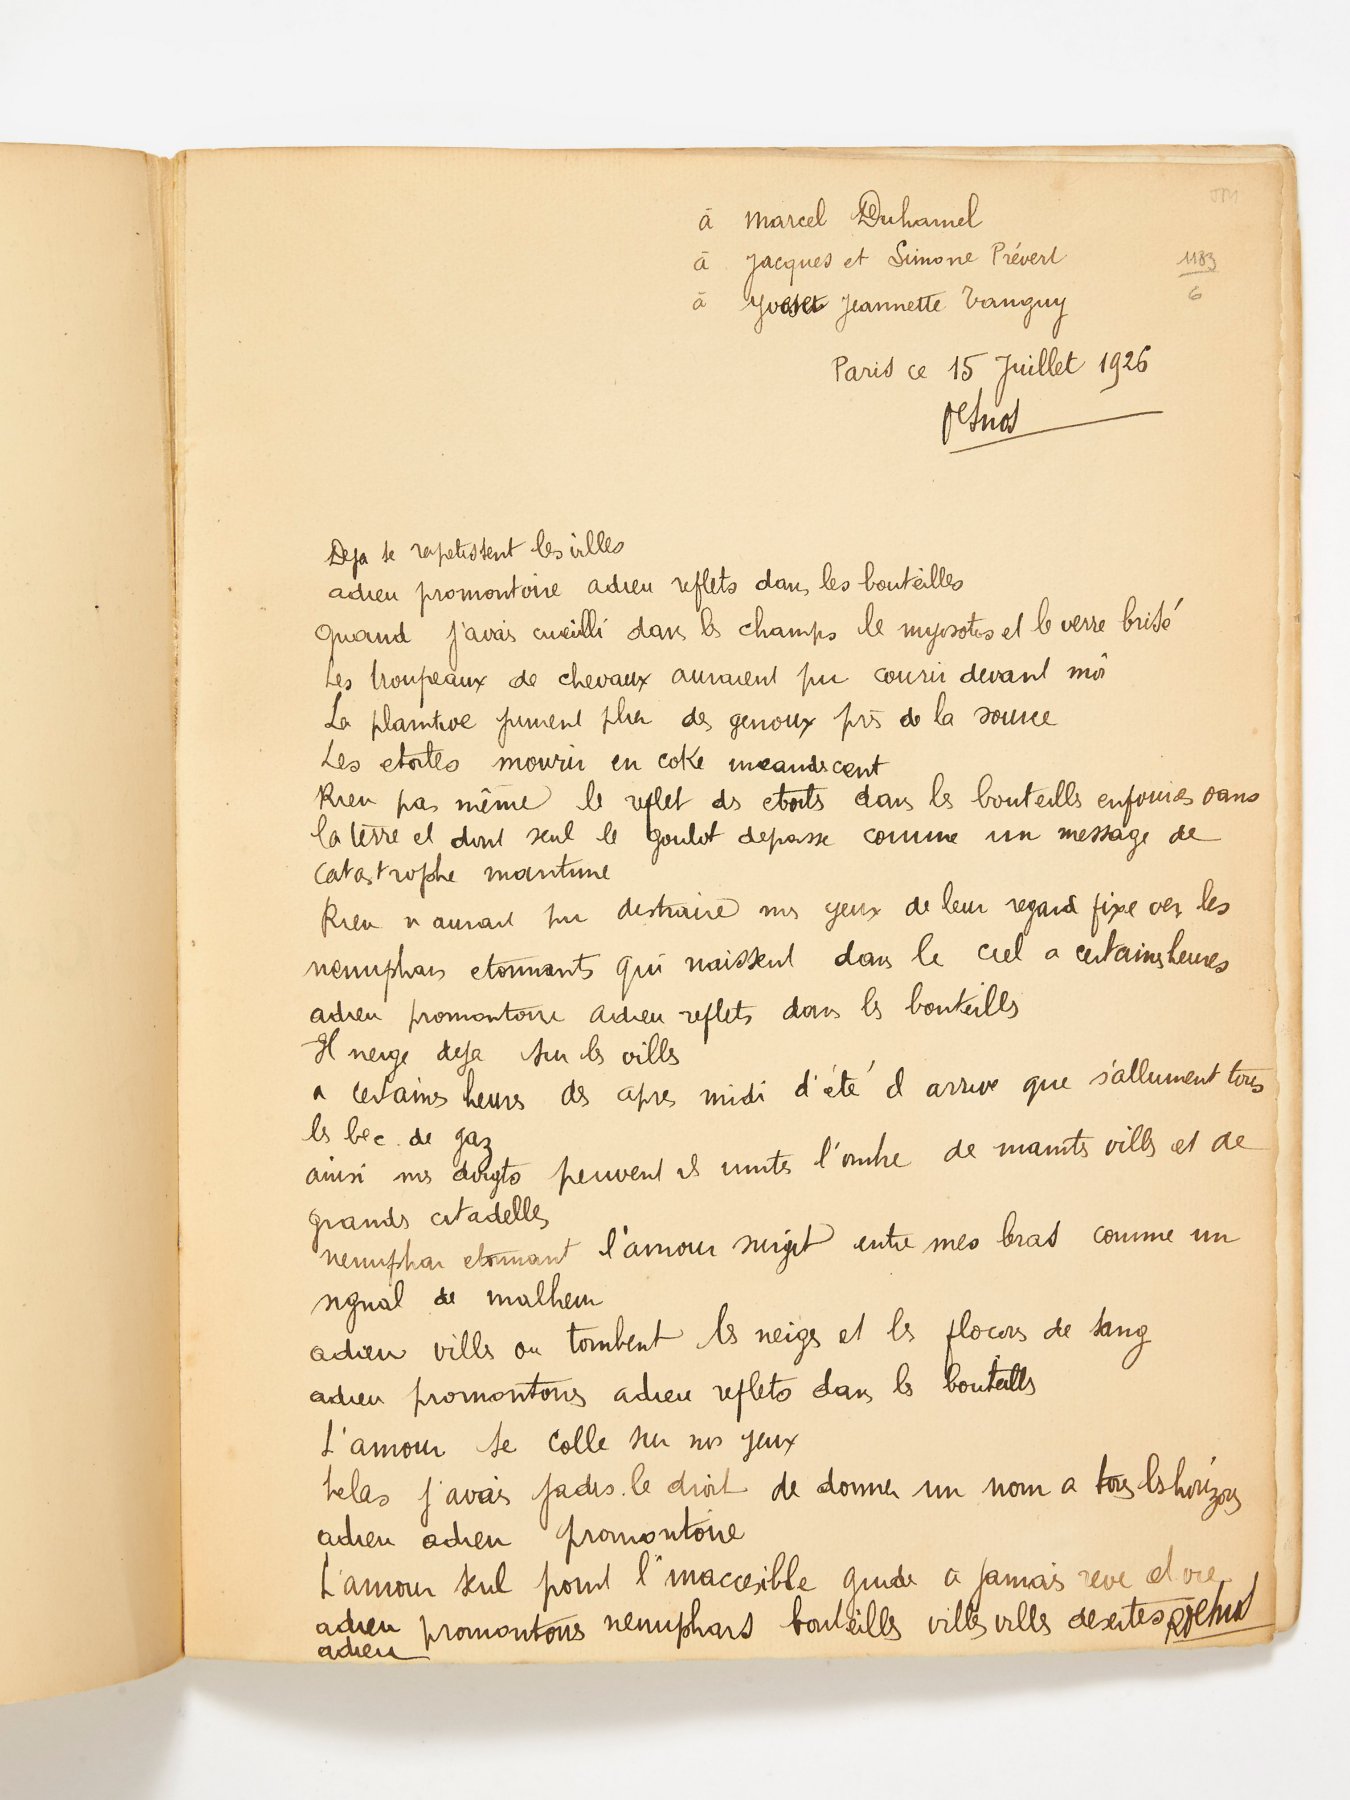 à Marcel Duhamel
à Jacques et Simone Prévert
à Yves et Jeannette Tanguy
JM
1183
6
Paris ce 15 Juillet 1926
Desnos
Deja se rapetissent les villes
adieu promontoire adieu reflets dans les bouteilles
Quand j'avais cueilli dans les champs le myosotis et le verre brisé
Les troupeaux de chevaux auraient pu courir devant moi
La plaintive jument plier des genoux près de la source
Les etoiles mourir en coke incandescent
Rien pas même le reflet des etoiles dans les bouteilles enfouies dans
la terre et dont seul le goulot depasse comme un message de
catastrophe maritime
Rien n'aurait pu distraire mes yeux de leur regard fixe vers les
nenuphars etonnants qui naissent dans le ciel a certaines heures
adieu promontoire adieu reflets dans les bouteilles
Il neige deja sur les villes
a certaines heures des apres midi d'été il arrive que s'allument tous
les becs de gaz
ainsi mes doigts peuvent ils imiter l'ombre de maintes villes et de
grandes citadelles
nenuphar etonnant l'amour surgit entre mes bras comme un
signal de malheur
adieu villes ou tombent les neiges et les flocons de sang
adieu promontoires adieu reflets dans les bouteilles
L'amour se colle sur nos yeux
helas j'avais jadis le droit de donner un nom a tous les horizons
adieu adieu promontoire
L'amour seul point l'inaccessible guide à jamais reve et vie
adieu promontoires nenuphars bouteilles villes villes desertes R Desnos
adieu